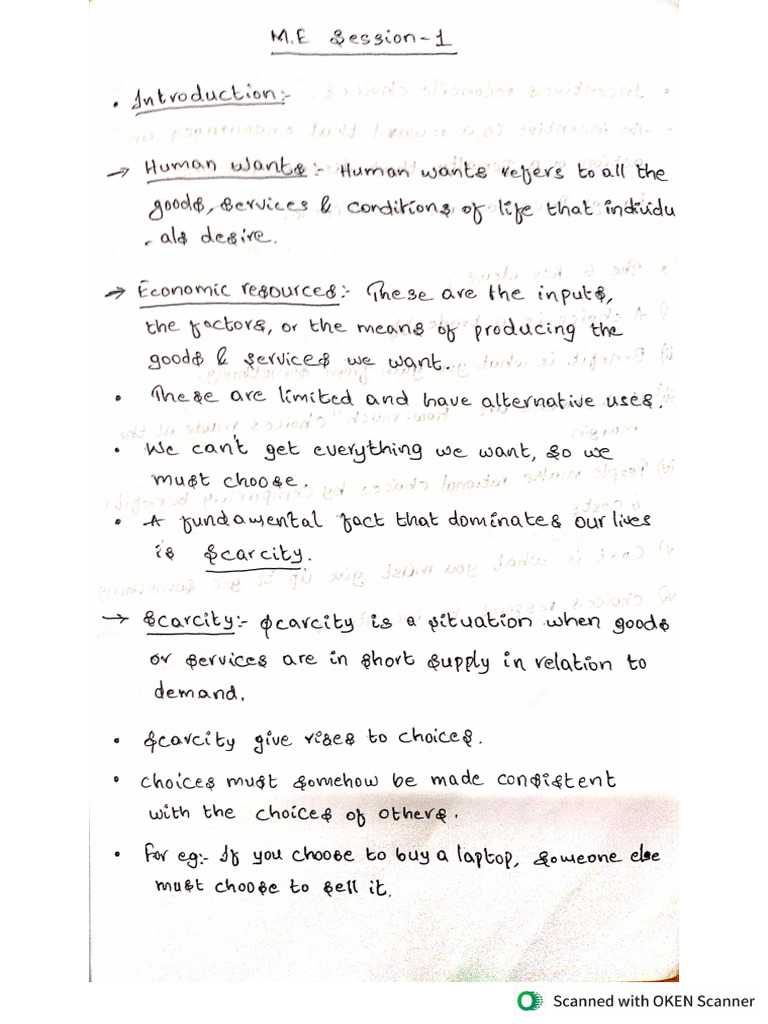 M.E Session-1
• Introduction:-
→ Human wants:- Human wants refers to all the
goods, services & conditions of life that individu
- als desire.
→ Economic resources:- These are the inputs,
the factors, or the means of producing the
goods & services we want.
• These are limited and have alternative uses.
• We can't get everything we want, so we
must choose.
• A fundamental fact that dominates our lives
is scarcity.
→ Scarcity:- Scarcity is a situation when goods
or services are in short supply in relation to
demand.
• Scarcity give rises to choices.
• choices must somehow be made consistent
with the choices of others.
• For eg:- If you choose to buy a laptop, someone else
must choose to sell it.
Scanned with OKEN Scanner